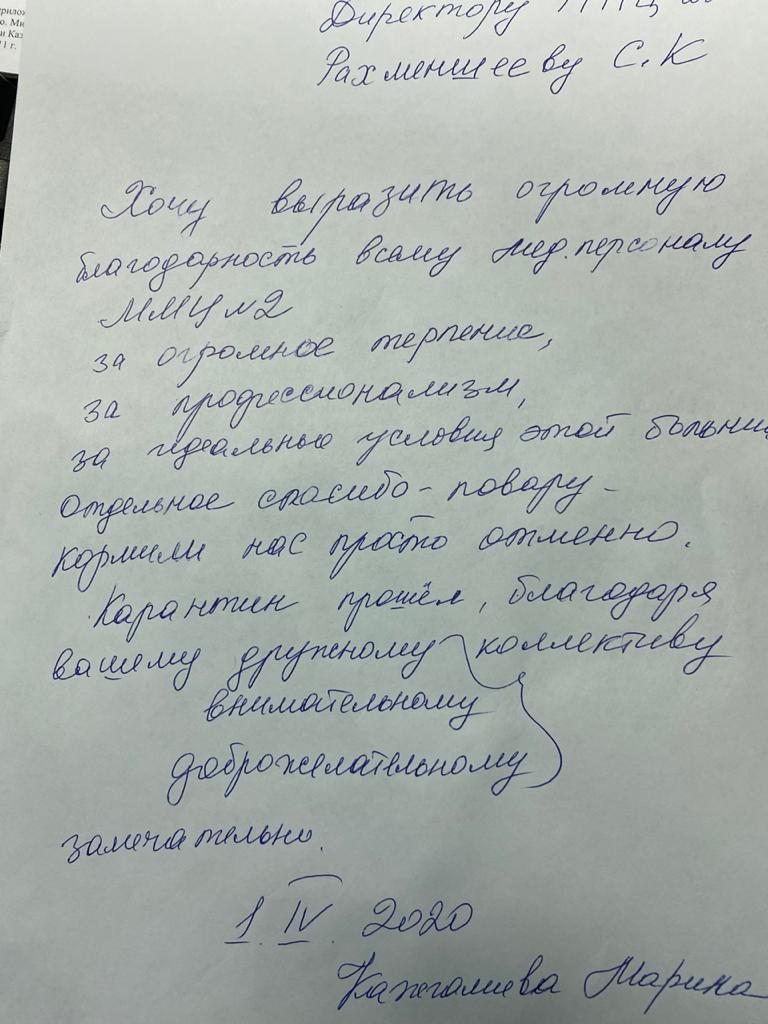 Директору ММЦ
Рахменшееву С.К
Хочу выразить огромную
благодарность всему мед.персоналу
ММЦ №2
за огромное терпение,
за профессионализм,
за идеальные условия этой больни
Отдельное спасибо - повару -
кормили нас просто отменно.
Карантин прошёл, благодаря
вашему дружному коллективу
внимательному
доброжелательному
замечательно.
1. IV. 2020
Кажгалиева Марина